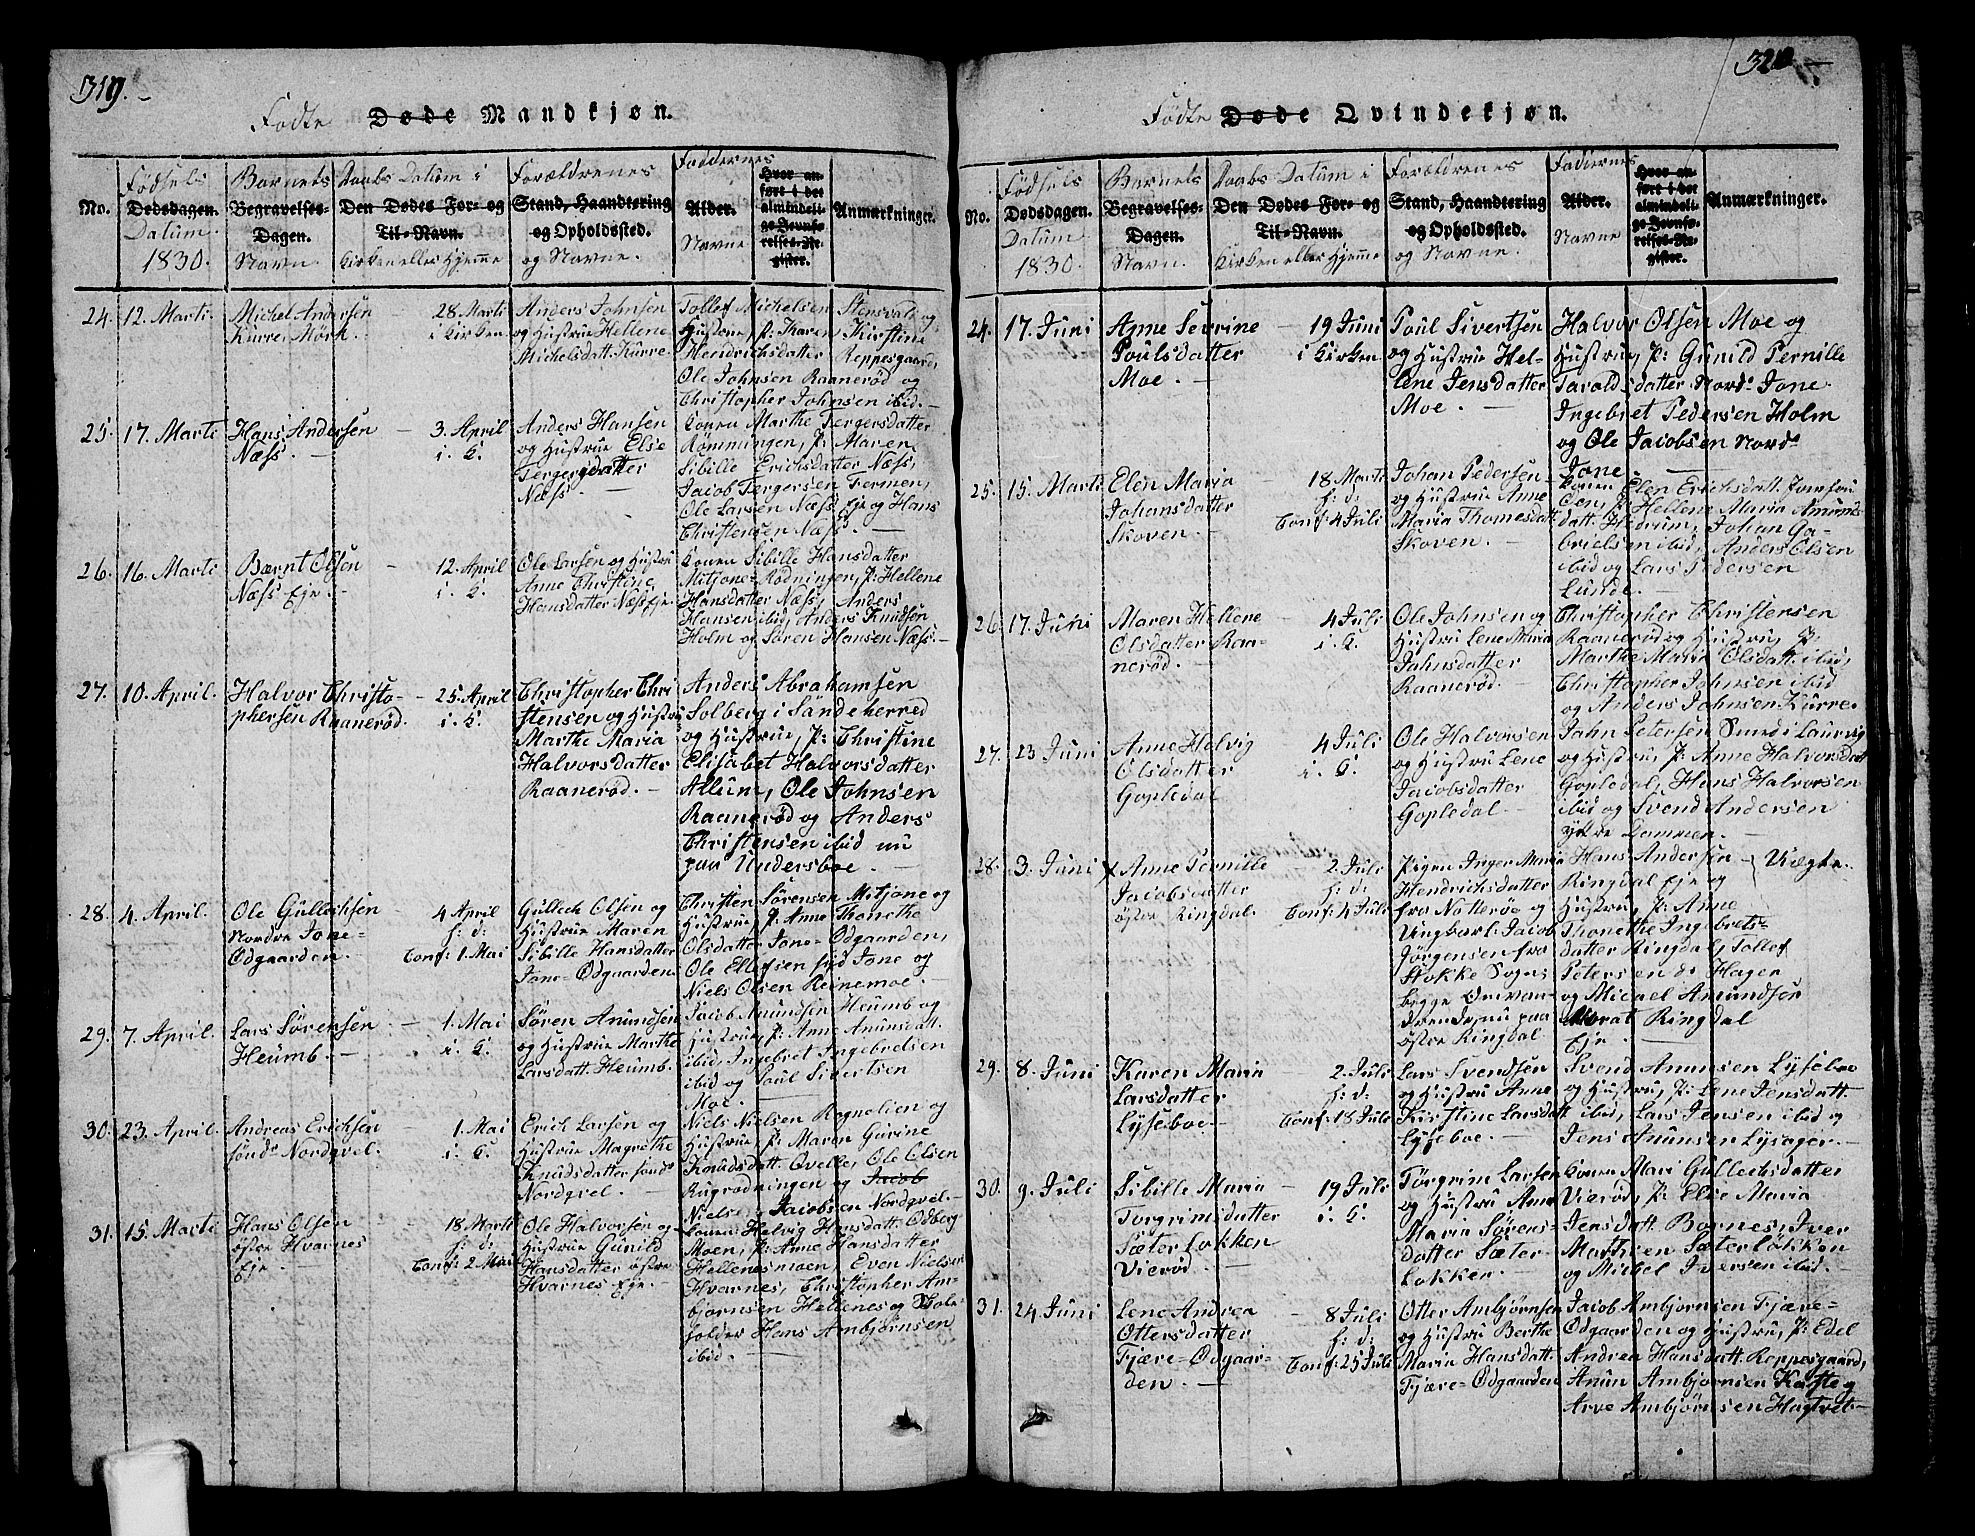 319.
Fødte Døde Mandkjøn.
No.
Fødsels
Dødsdagen.
Datum
1830.
Barnets
Begravelses-
Dagen.
Navn.
Daabs Datum i
Den Dødes For- og
Til-Navn.
Kirken eller Hjemme
Forældrenes
Stand, Haandtering
og Opholdssted.
og Navne.
Faddernes
Alder.
Navne
Hvor an-
ført i det
almindeli-
ge Jevnfø-
relses-Re-
gister.
Anmærkninger.
24. 12. Marti
Michel Andersen
Kurre Mørk.
28 Marti
i Kirken
Anders Johnsen
og Hustrue Hellene
Michelsdatt. Kurre
Tollef Michelsen Stensvold og
Hustrue, P: Karen Kirstine
Hendrichsdatter Reppesgaard,
Ole Johnsen Raanerød og
Christopher Johnsen ibid. —
25. 17. Marti
Hans Andersen
Næss. —
3. April
i. K.
Anders Hansen
og Hustrue Else
Tergersdatter
Næss. —
Konen Marthe Tergersdatter
Rømmingen, P: Maren
Sibille Erichsdatter Næss,
Jacob Tergersen Termen,
Ole Larsen Næss Eje og Hans
Christensen Næss. —
26. 16. Marti
Bærnt Olsen
Næss Eje. —
12. April
i. K.
Ole Larsen og Hustrue
Anne Christine
Hansdatter Næss Eje.
Konen Sibille Hansdatter
Mitjone-Rødningen, P: Hellene
Hansdatter Næss, Anders
Hansen ibid, Anders Knudsen
Holm og Søren Hansen Næss. —
27. 10. April.
Halvor Christo-
phersen Raanerød.
25. April
i. K.
Christopher Chri-
stensen og Hustru
Marthe Maria
Halvorsdatter
Raanerød. —
Anders Abrahamsen
Solberg i Sandeherred
og Hustrue, P: Christine
Elisabet Halvorsdatter
Allum, Ole Johnsen
Raanerød og Anders
Christensen ibid nu
paa Undersboe. —
28. 4. April.
Ole Gullechsen
Nordre Jone-
Ødgaarden. —
4 April
h: d:
Conf: 1. Mai
Gullech Olsen og
Hustrue Maren
Sibille Hansdatter
Jone-Ødgaarden.
Christen Sørensen Mitjone og
Hustrue, P: Anne Thonethe
Olsdatter Jone-Ødgaarden,
Ole Ellefsen syd Jone og
Niels Olsen Reinemoe. —
29. 7. April.
Lars Sørensen
Heumb. —
1. Mai
i. K.
Søren Anundsen
og Hustrue Marthe
Larsdatt. Heumb.
Jacob Anundsen Heumb og
Hustrue, P: Anne Anunsdatt.
ibid, Ingebret Ingebretsen
ibid og Poul Sivertsen
Moe. —
30. 23. April.
Andreas Erichsen
sønd. Nordqvel.
1. Mai
i. K.
Erich Larsen og
Hustrue Magrethe
Knudsdatter sønd.
Nordqvel. —
Niels Nielsen Rognelien og
Hustrue, P: Maren Gurine
Knudsdatt. Qvelle, Ole Olsen
Rugrødningen og Jacob
Niels Jacobsen Nordqvel. —
31. 15. Marti
Hans Olsen
østre Hvarnes
Eje. —
18. Marti
h: d:
Conf: 2 Mai
Ole Halvorsen og
Hustrue Gunild
Hansdatter østre
Hvarnes Eje. —
Konen Helvig Hansdatt. Odberg
Moen, P: Anne Hansdatter
Hellenesmoen, Even Nielsen
Hvarnes, Christopher Am-
bjørnsen Hellenes og Skole-
holder Hans Ambjørnsen
ibid. —
320 —
Fødte Døde Qvindekjøn.
No.
Fødsels
Dødsdagen.
Datum
1830.
Barnets
Begravelses-
Dagen.
Navn.
Daabs Datum i
Den Dødes For- og
Til-Navn.
Kirken eller Hjemme
Forældrenes
Stand, Haandtering
og Opholdssted.
og Navne.
Faddernes
Alder.
Navne
Hvor an-
ført i det
almindeli-
ge Jevnfø-
relses-Re-
gister.
Anmærkninger.
24. 17. Juni
Anne Sevrine
Poulsdatter
Moe. —
19 Juni
i Kirken
Poul Sivertsen
og Hustrue Hel-
lene Jensdatter
Moe. —
Halvor Olsen Moe og
Hustrue, P: Gunild Pernille
Taraldsdatter Nord. Jone.
Ingebret Pedersen Holm
og Ole Jacobsen Nord.
Jone —
25. 15. Marti
Elen Maria
Johansdatter
Skoven. —
18 Marti
h: d:
Conf: 4 Juli
Johan Pedersen
og Hustrue Anne
Maria Thomesdatt
Skoven. —
Konen Elen Erichsdatt. Jomfru
P: Hellene Maria Amunds-
datt. Hedrum, Johan Ga-
brielsen ibid, Anders Olsen
ibid og Lars Pedersen
Lunde. —
26. 17. Juni
Maren Hellene
Olsdatter Raa-
nerød. —
4 Juli
i. K.
Ole Johnsen og
Hustru Lene Maria
Jahnsdatter
Raanerød. —
Christopher Christensen
Raanerød og Hustru, P:
Marthe Maria Olsdatt. ibid,
Christopher Johnsen ibid
og Anders Johnsen Kurre.
27. 23 Juni
Anne Helvig
Olsdatter
Gopledal
4 Juli
i. K.
Ole Halvorsen
og Hustrue Lene
Jacobsdatter
Gopledal
Jahn Petersen Sund i Laurvig
og Hustru, P: Anne Halvorsdatt
Gopledal, Hans Halvorsen
ibid og Svend Andersen
ydre Dammen. —
28. 3. Juni
x Anne Pernille
Jacobsdatter
østre Ringdal.
2 Juli
h: d:
Conf: 4 Juli
Pigen Inger Maria
Hendrichsdatter
fra Nøtterøe og
Ungkarl Jacob
Jørgensen fra
Stokke Sogn;
begge Omvan-
drende, nu paa
østre Ringdal.
Hans Andersen
Ringdal Eje og
Hustrue, P: Anne
Thonethe Ingebrets-
datter Ringdal, Tollef
Petersen d: Hager
og Micael Amundsen
Morat Ringdal
Eje. —
Uægte.
29. 8. Juni
Karen Maria
Larsdatter
Lyseboe. —
2. Juli
h: d:
Conf: 18 Juli
Lars Svendsen
og Hustrue Anne
Kirstine Larsdatt
Lyseboe. —
Svend Anunsen Lyseboe
og Hustru, P: Lene Jensdatt.
ibid, Lars Jensen ibid og
Jens Anunsen Lysager. —
30. 9. Juli
Sibille Maria
Torgrimsdatter
Sæter Løkken
Vierød.
19 Juli
i. K.
Torgrim Larsen
og Hustru Anne
Maria Sørens-
datter Sæter-
Løkken. —
Konen Mari Gullechsdatter
Vierød, P: Else Maria
Jensdatt. Bornes, Iver
Mathisen Sæterløkken
og Michel Iversen ibid. —
31. 24 Juni
Lene Andrea
Ottersdatter
Fjære-Ødgaar-
den. —
8 Juli
h: d:
Conf: 25 Juli
Otter Ambjørnsen
og Hustru Berthe
Maria Hansdatt.
Fjære-Ødgaarden
Jacob Ambjørnsen Fjære-
Ødgaarden og Hustru, P: Edel
Andrea Hansdatt. Reppesgaard,
Anun Ambjørnsen Kaste og
Arve Ambjørnsen Hagtvet. —